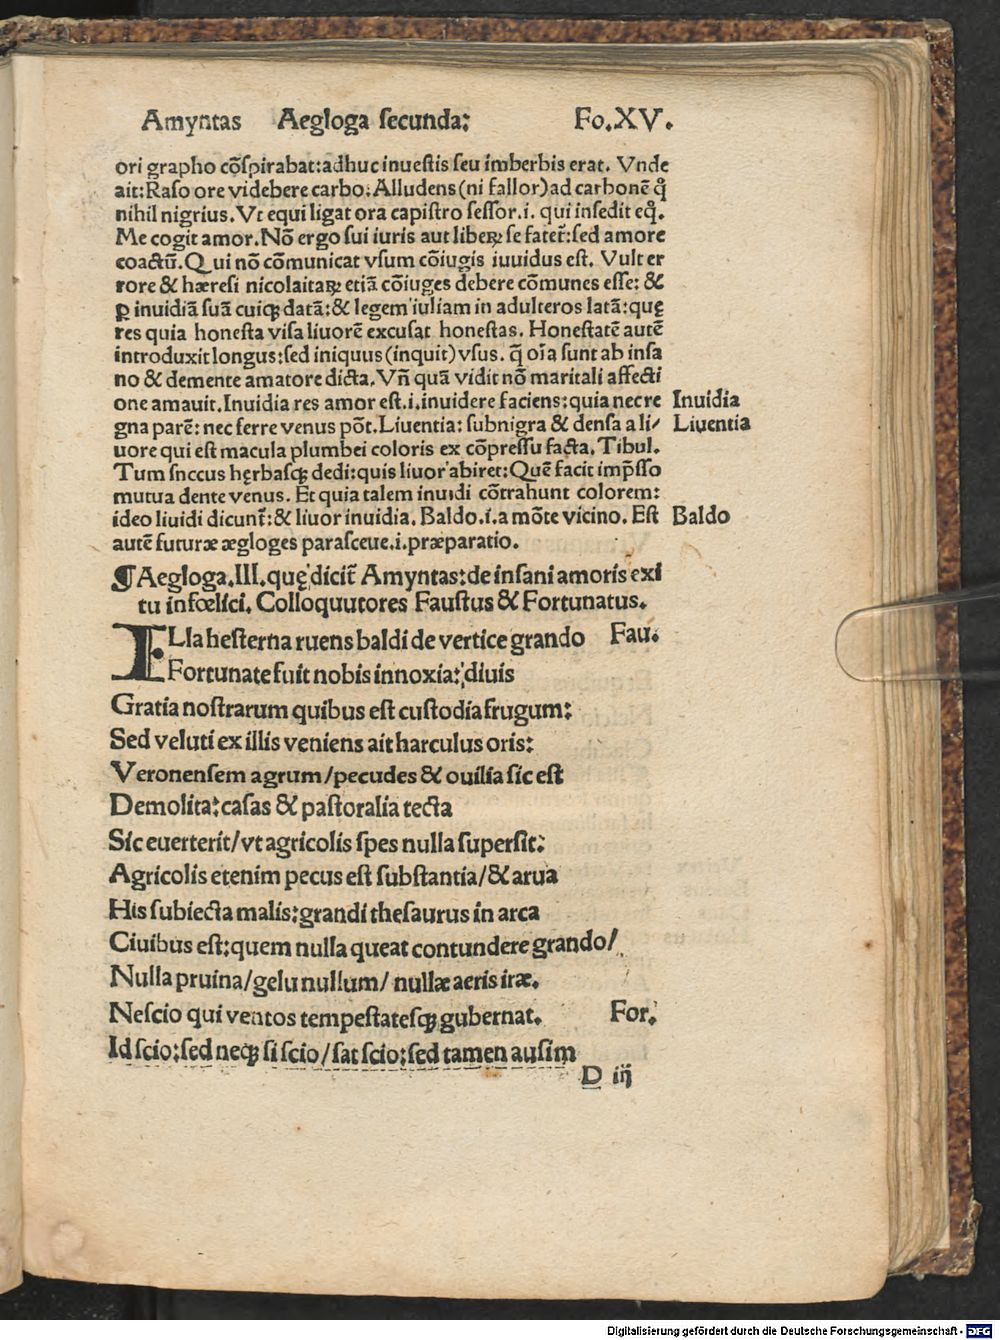 Amyntas Aegloga secunda: Fo.XV.
ori grapho cõspirabat:adhuc inuestis seu imberbis erat. Vnde
ait:Raso ore videbere carbo. Alludens(ni fallor)ad carbonẽ q̃
nihil nigrius. Vt equi ligat ora capistro sessor.i. qui insedit eq̃.
Me cogit amor. Nõ ergo sui iuris aut liberꝝ se fatet̃:sed amore
coactũ. Qui nõ cõmunicat vsum cõiugis iuuidus est. Vult er
rore & hæresi nicolaitaꝝ etiã cõiuges debere cõmunes esse: &
ꝑ inuidiã suã cuiqꝫ datã:& legem iuliam in adulteros latã:quę
res quia honesta visa liuorẽ excusat honestas. Honestatẽ autẽ
introduxit longus:sed iniquus(inquit)vsus. q̃ oĩa sunt ab insa
no & demente amatore dicta. Vñ quã vidit nõ maritali affecti
one amauit. Inuidia res amor est.i.inuidere faciens:quia nec re Inuidia
gna parẽ: nec ferre venus põt. Liuentia: subnigra & densa a li/ Liuentia
uore qui est macula plumbei coloris ex cõpressu facta. Tibul.
Tum snccus hęrbasqꝫ dedi:quis liuor abiret:Quẽ facit imp̃sso
mutua dente venus. Et quia talem inuidi cõtrahunt colorem:
ideo liuidi dicunt̃:& liuor inuidia. Baldo.i.a mõte vicino. Est Baldo
autẽ futuræ ægloges parasceue.i.præparatio.
¶Aegloga.III.quę dicit̃ Amyntas:de insani amoris exi
tu infœlici. Colloquutores Faustus & Fortunatus.
ILla hesterna ruens baldi de vertice grando Fau.
Fortunate fuit nobis innoxia: diuis
Gratia nostrarum quibus est custodia frugum:
Sed veluti ex illis veniens ait harculus oris:
Veronensem agrum/pecudes & ouilia sic est
Demolita:casas & pastoralia tecta
Sic euerterit/vt agricolis spes nulla supersit:
Agricolis etenim pecus est substantia/& arua
His subiecta malis:grandi thesaurus in arca
Ciuibus est:quem nulla queat contundere grando/
Nulla pruina/gelu nullum/ nullæ aeris iræ.
Nescio qui ventos tempestatesqꝫ gubernat. For.
Id scio:sed neqꝫ si scio/sat scio:sed tamen ausim
D iij
Digitalisierung gefördert durch die Deutsche Forschungsgemeinschaft - DFG